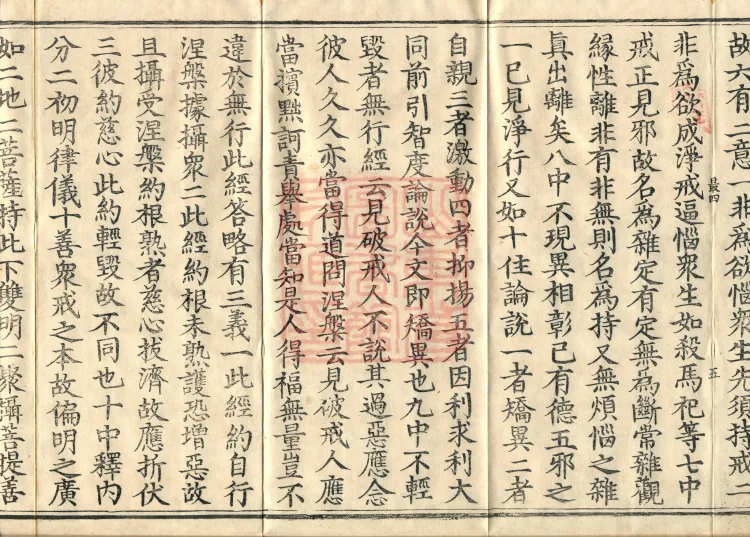 故六有二意一非爲欲惱衆生先須持戒二
非爲欲成淨戒逼惱衆生如殺馬祀等七中
戒正見邪故名爲雜定有定無爲斷常雜觀
緣性離非有非無則名爲持又無煩惱之雜
眞出離矣八中不現異相彰已有德五邪之
一已見淨行又如十住論說一者矯異二者
自親三者激動四者抑揚五者因利求利大
同前引智度論說今文即矯異也九中不輕
毀者無行經云見破戒人不說其過惡應念
彼人久久亦當得道問涅槃云見破戒人應
當擯黜訶責舉處當知是人得福無量豈不
違於無行此經答略有三義一此經約自行
涅槃據攝衆二此經約根未熟護恐增惡故
且攝受涅槃約根熟者慈心拔濟故應折伏
三彼約慈心此約輕毀故不同也十中釋内
分二初明律儀十善衆戒之本故偏明之廣
如二地二菩薩持此下雙明二聚攝菩提善
最四
五